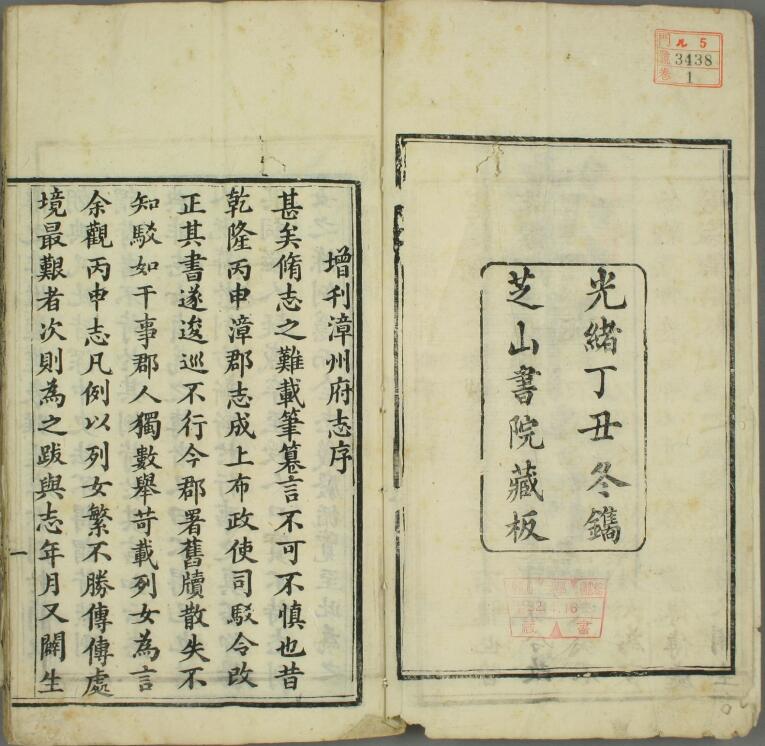 門 ル 5
號 3438
卷 1
光緒丁丑冬鐫
芝山書院藏板
增刋漳州府志序
甚矣脩志之難載筆纂言不可不慎也昔
乾隆丙申漳郡志成上布政使司駁令改
正其書遂逡巡不行今郡署舊牘散失不
知駁如干事郡人獨數舉苛載列女為言
余觀丙申志凡例以列女繁不勝傳傳處
境最艱者次則為之跋與志年月又闢生
一